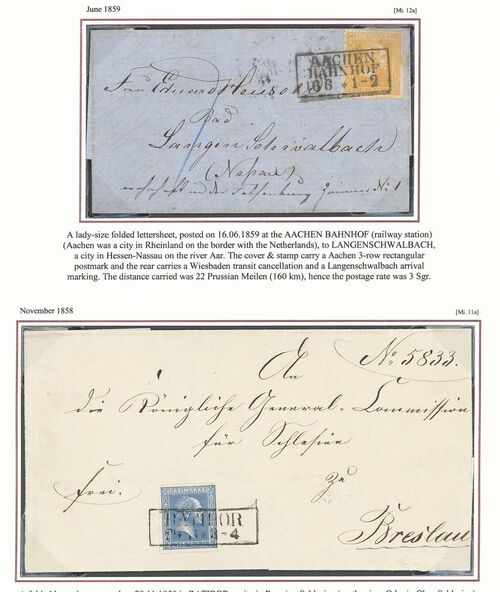 June 1859
[Mi. 12a]
AACHEN
BAHNHOF
16 6 * 1-2
Bad
Langen Schwalbach
(Nassau)
A lady-size folded lettersheet, posted on 16.06.1859 at the AACHEN BAHNHOF (railway station)
(Aachen was a city in Rheinland on the border with the Netherlands), to LANGENSCHWALBACH,
a city in Hessen-Nassau on the river Aar. The cover & stamp carry a Aachen 3-row rectangular
postmark and the rear carries a Wiesbaden transit cancellation and a Langenschwalbach arrival
marking. The distance carried was 22 Prussian Meilen (160 km), hence the postage rate was 3 Sgr.
November 1858
[Mi. 11a]
No 5833.
An
die Königliche General-Commission
für Schlesien
zu
frei.
FREIMARKE
RATIBOR
Breslau